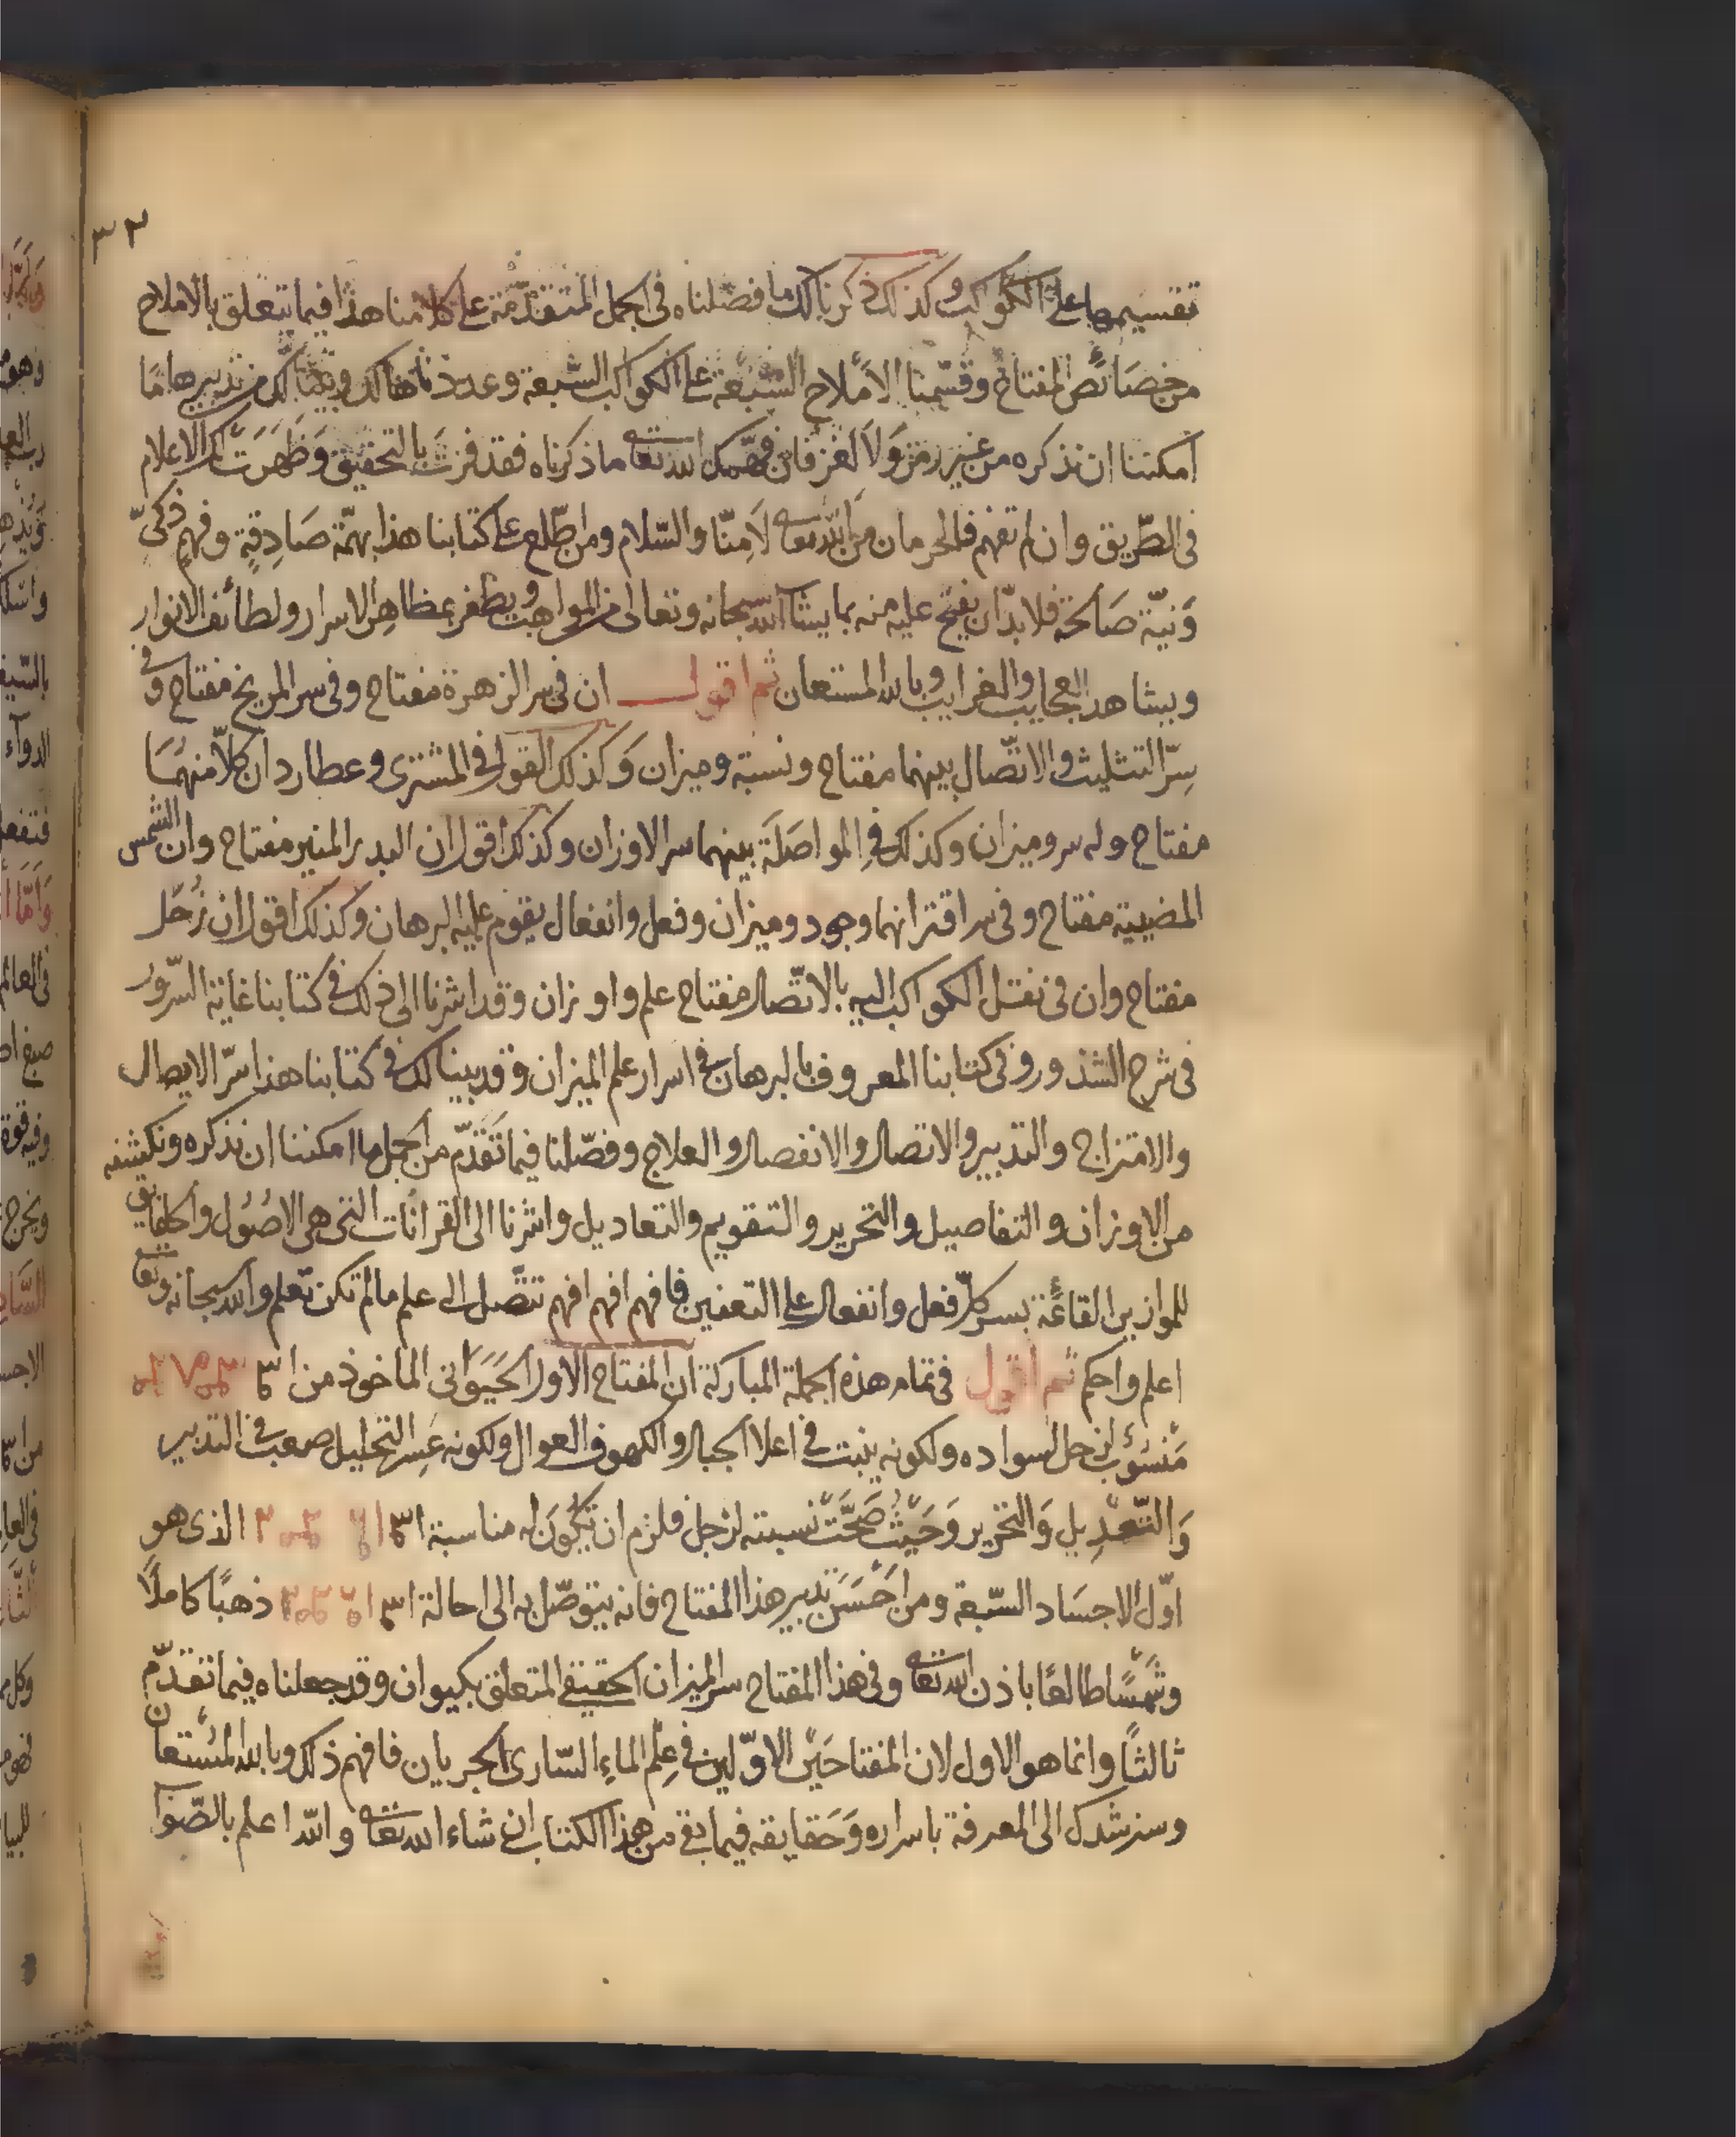 ٣٢
تقسيمها على الكواكب وكذلك ذكرنا لك ما فصلناه في الجمل المتقدّمة على كلامنا هذا فيما يتعلق بالاملاح
من خصائص المفتاح وقسّمنا الاملاح السّبعة على الكواكب السّبعة وعددناها لك وبيّنا لك من تدبيرها ما
امكننا ان نذكره من غير رمز ولا لغز فان فهّمك الله تعا ما ذكرناه فقد فزت بالتحقيق وظهرت لك الاعلام
في الطّريق وان لم تفهم فالحرمان من الله تعا لا منّا والسّلام ومن اطّلع على كتابنا هذا بهمّة صادقةٍ وفهمٍ ذكيّ
ونيّة صالحة فلا بدّ ان يفتح عليه منه بما يشآ الله سبحانه وتعالى من المواهب ويظفر بمظاهر الاسرار ولطائف الانوار
ويشاهد العجايب والغرايب وبالله المستعان ثم اقول ان في سر الزهرة مفتاح وفي سر المريخ مفتاح وفي
سرّ التثليث والاتّصال بينهما مفتاح ونسبة وميزان وكذلك القول في المشترى وعطارد ان كلاّ منهما
مفتاح وله سر وميزان وكذلك في المواصلة بينهما سر الاوزان وكذلك اقول ان البدر المنير مفتاح وان الشمس
المضيية مفتاح وفي سر اقترانهما وجود وميزان وفعل وانفعال يقوم عليه البرهان وكذلك اقول ان زحل
مفتاح وان في نقل الكواكب اليه بالاتّصال مفتاح علم واوزان وقد اشرنا الى ذلك في كتابنا غاية السّرور
في شرح الشذور وفي كتابنا المعروف بالبرهان في اسرار علم الميزان وقد بينا لك في كتابنا هذا سرّ الايصال
والامتزاج والتدبير والاتصال والانفصال والعلاج وفصّلنا فيما تقدّم من الجمل ما امكننا ان نذكره ونكشفه
من الاوزان والتفاصيل والتحرير والتقويم والتعاديل واشرنا الى القرانات التي هي الاصول والحقايق
للموازين القائمة بسر كلّ فعل وانفعال على التعفين فافهم افهم افهم تتّصل الى علم ما لم تكن تعلم والله سبحانه وتعا
اعلم واحكم ثم اقول في تمام هذه الجملة المباركة ان المفتاح الاول الحيواني الماخوذ من
منسوب لزحل لسواده ولكونه ينبت في اعلا الجبال والكهوف العوال ولكونه عسر التحليل صعب في التدبير
والتّعديل والتحرير وحيث صحّت نسبته لزحل فلزم ان تكون له مناسبة الذي هو
اوّل الاجساد السّبعة ومن احسن تدبير هذا المفتاح فانه يتوصّل به الى احالة ذهبًا كاملًا
وشمسًا طالعًا باذن الله تعا وفي هذا المفتاح سر الميزان الحقيقي المتعلق بكيوان وقد جعلناه فيما تقدّم
ثالثًا وانما هو الاول لان المفتاحين الاوّلين في علم الماء السّارى الجريان فافهم ذلك وبالله المستعان
وسنرشدك الى المعرفة باسراره وحقايقه فيما بقي من هذا الكتاب ان شاء الله تعا والله اعلم بالصّواب